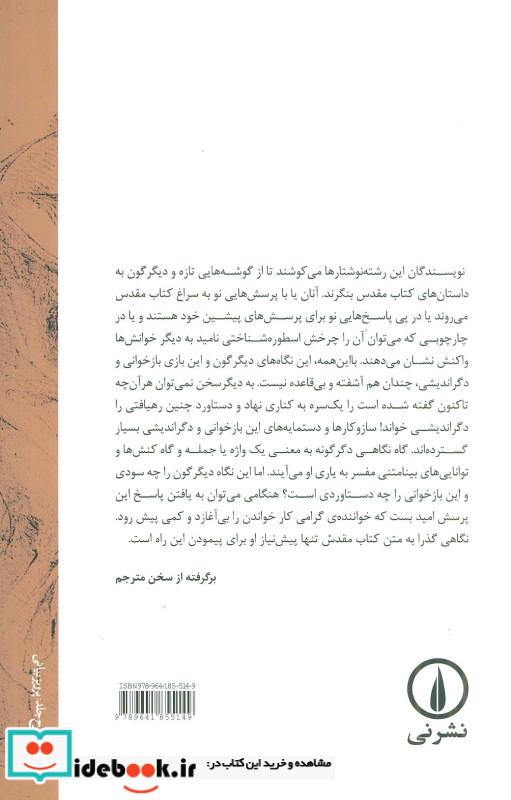 نویسندگان این رشته‌نوشتارها می‌کوشند تا از گوشه‌هایی تازه و دیگرگون به
داستان‌های کتاب مقدس بنگرند. آنان یا با پرسش‌هایی نو به سراغ کتاب مقدس
می‌روند یا در پی پاسخ‌هایی نو برای پرسش‌های پیشین خود هستند و یا در
چارچوبی که می‌توان آن را چرخش اسطوره‌شناختی نامید به دیگر خوانش‌ها
واکنش نشان می‌دهند. بااین‌همه، این نگاه‌های دیگرگون و این بازی بازخوانی و
دگراندیشی، چندان هم آشفته و بی‌قاعده نیست. به دیگرسخن نمی‌توان هرآن‌چه
تاکنون گفته شده است را یک‌سره به کناری نهاد و دستاورد چنین رهیافتی را
دگراندیشی خواند! سازوکارها و دستمایه‌های این بازخوانی و دگراندیشی بسیار
گسترده‌اند. گاه نگاهی دگرگونه به معنی یک واژه یا جمله و گاه کنش‌ها و
توانایی‌های بینامتنی مفسر به یاری او می‌آیند. اما این نگاه دیگرگون را چه سودی
و این بازخوانی را چه دستاوردی است؟ هنگامی می‌توان به یافتن پاسخ این
پرسش امید بست که خواننده‌ی گرامی کار خواندن را بی‌آغازد و کمی پیش رود.
نگاهی گذرا به متن کتاب مقدس تنها پیش‌نیاز او برای پیمودن این راه است.
برگرفته از سخن مترجم
ISBN978-964-185-514-9
9 789641 855149
نشرنی
جلد: پرویز بیانی
مشاهده و خرید این کتاب در:
idebook.ir